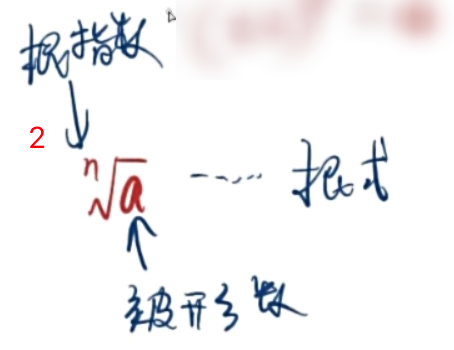 根指数
2
ⁿ√a ----- 根式
被开方数